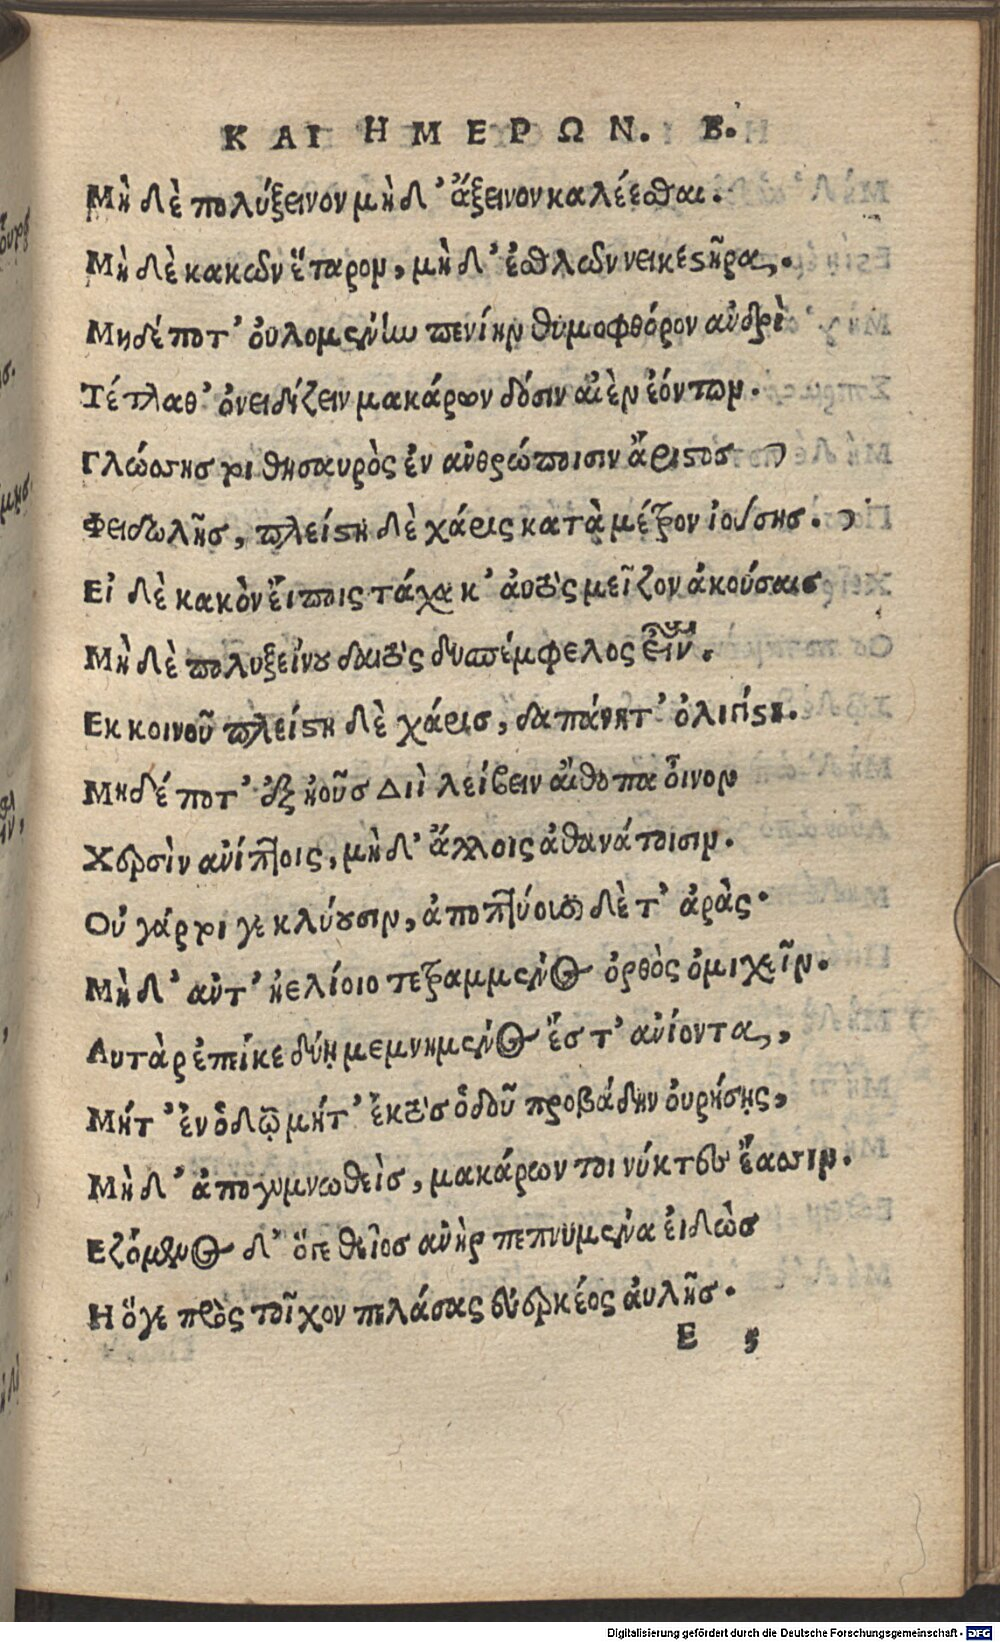 ΚΑΙ ΗΜΕΡΩΝ. Β.
Μὴ δὲ πολύξεινον μὴ δ' ἄξεινον καλέεσθαι.
Μὴ δὲ κακῶν ἕταρον, μὴ δ' ἐσθλῶν νεικεστῆρα,.
Μηδέ ποτ' ὀυλομένην πενίην θυμοφθόρον ἀνδρὶ
Τέτλαθ' ὀνειδίζειν μακάρων δόσιν ἀιὲν ἐόντων.
Γλώσσης τοι θησαυρὸς ἐν ἀνθρώποισιν ἄριστος
Φειδωλῆς, πλείστη δὲ χάρις κατὰ μέτρον ἰούσης.
Εἰ δὲ κακὸν ἔιποις τάχα κ' ἀυτὸς μεῖζον ἀκούσαις
Μὴ δὲ πολυξείνου δαιτὸς δυσπέμφελος εἶναι.
Εκ κοινοῦ πλείστη δὲ χάρις, δαπάνη τ' ὀλιγίστη.
Μηδέ ποτ' ἐξ ἠοῦς Διὶ λείβειν ἄιθοπα ὄινον
Χερσὶν ἀνίπτοις, μὴ δ' ἄλλοις ἀθανάτοισιν.
Οὐ γάρ τοι γε κλύουσιν, ἀποπτύουσι δέ τ' ἀρὰς.
Μὴ δ' ἀντ' ἠελίοιο τετραμμένος ὀρθὸς ὀμιχεῖν.
Αυτὰρ ἐπεί κε δύῃ μεμνημένος ἔς τ' ἀνίοντα,,
Μήτ' ἐν ὁδῷ μήτ' ἐκτὸς ὁδοῦ προβάδην ὀυρήσῃς,
Μὴ δ' ἀπογυμνωθεὶς, μακάρων τοι νύκτες ἔασσιν.
Εζόμενος δ' ὅγε θεῖος ἀνὴρ πεπνυμένα ἐιδὼς
Η ὅγε πρὸς τοῖχον πελάσας ἐυερκέος ἀυλῆς.
Ε ς
Digitalisierung gefördert durch die Deutsche Forschungsgemeinschaft - DFG